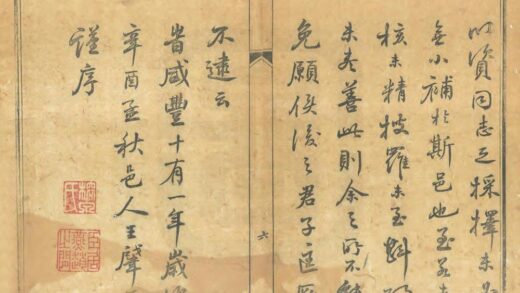 以資同志之採擇未
無小補於斯邑也至若
核未精羅未至斟
未盡善此則余之所不能
免願俟後之君子匡
六
不逮云
旹咸豐十有一年歲
辛酉孟秋邑人王聲
謹序